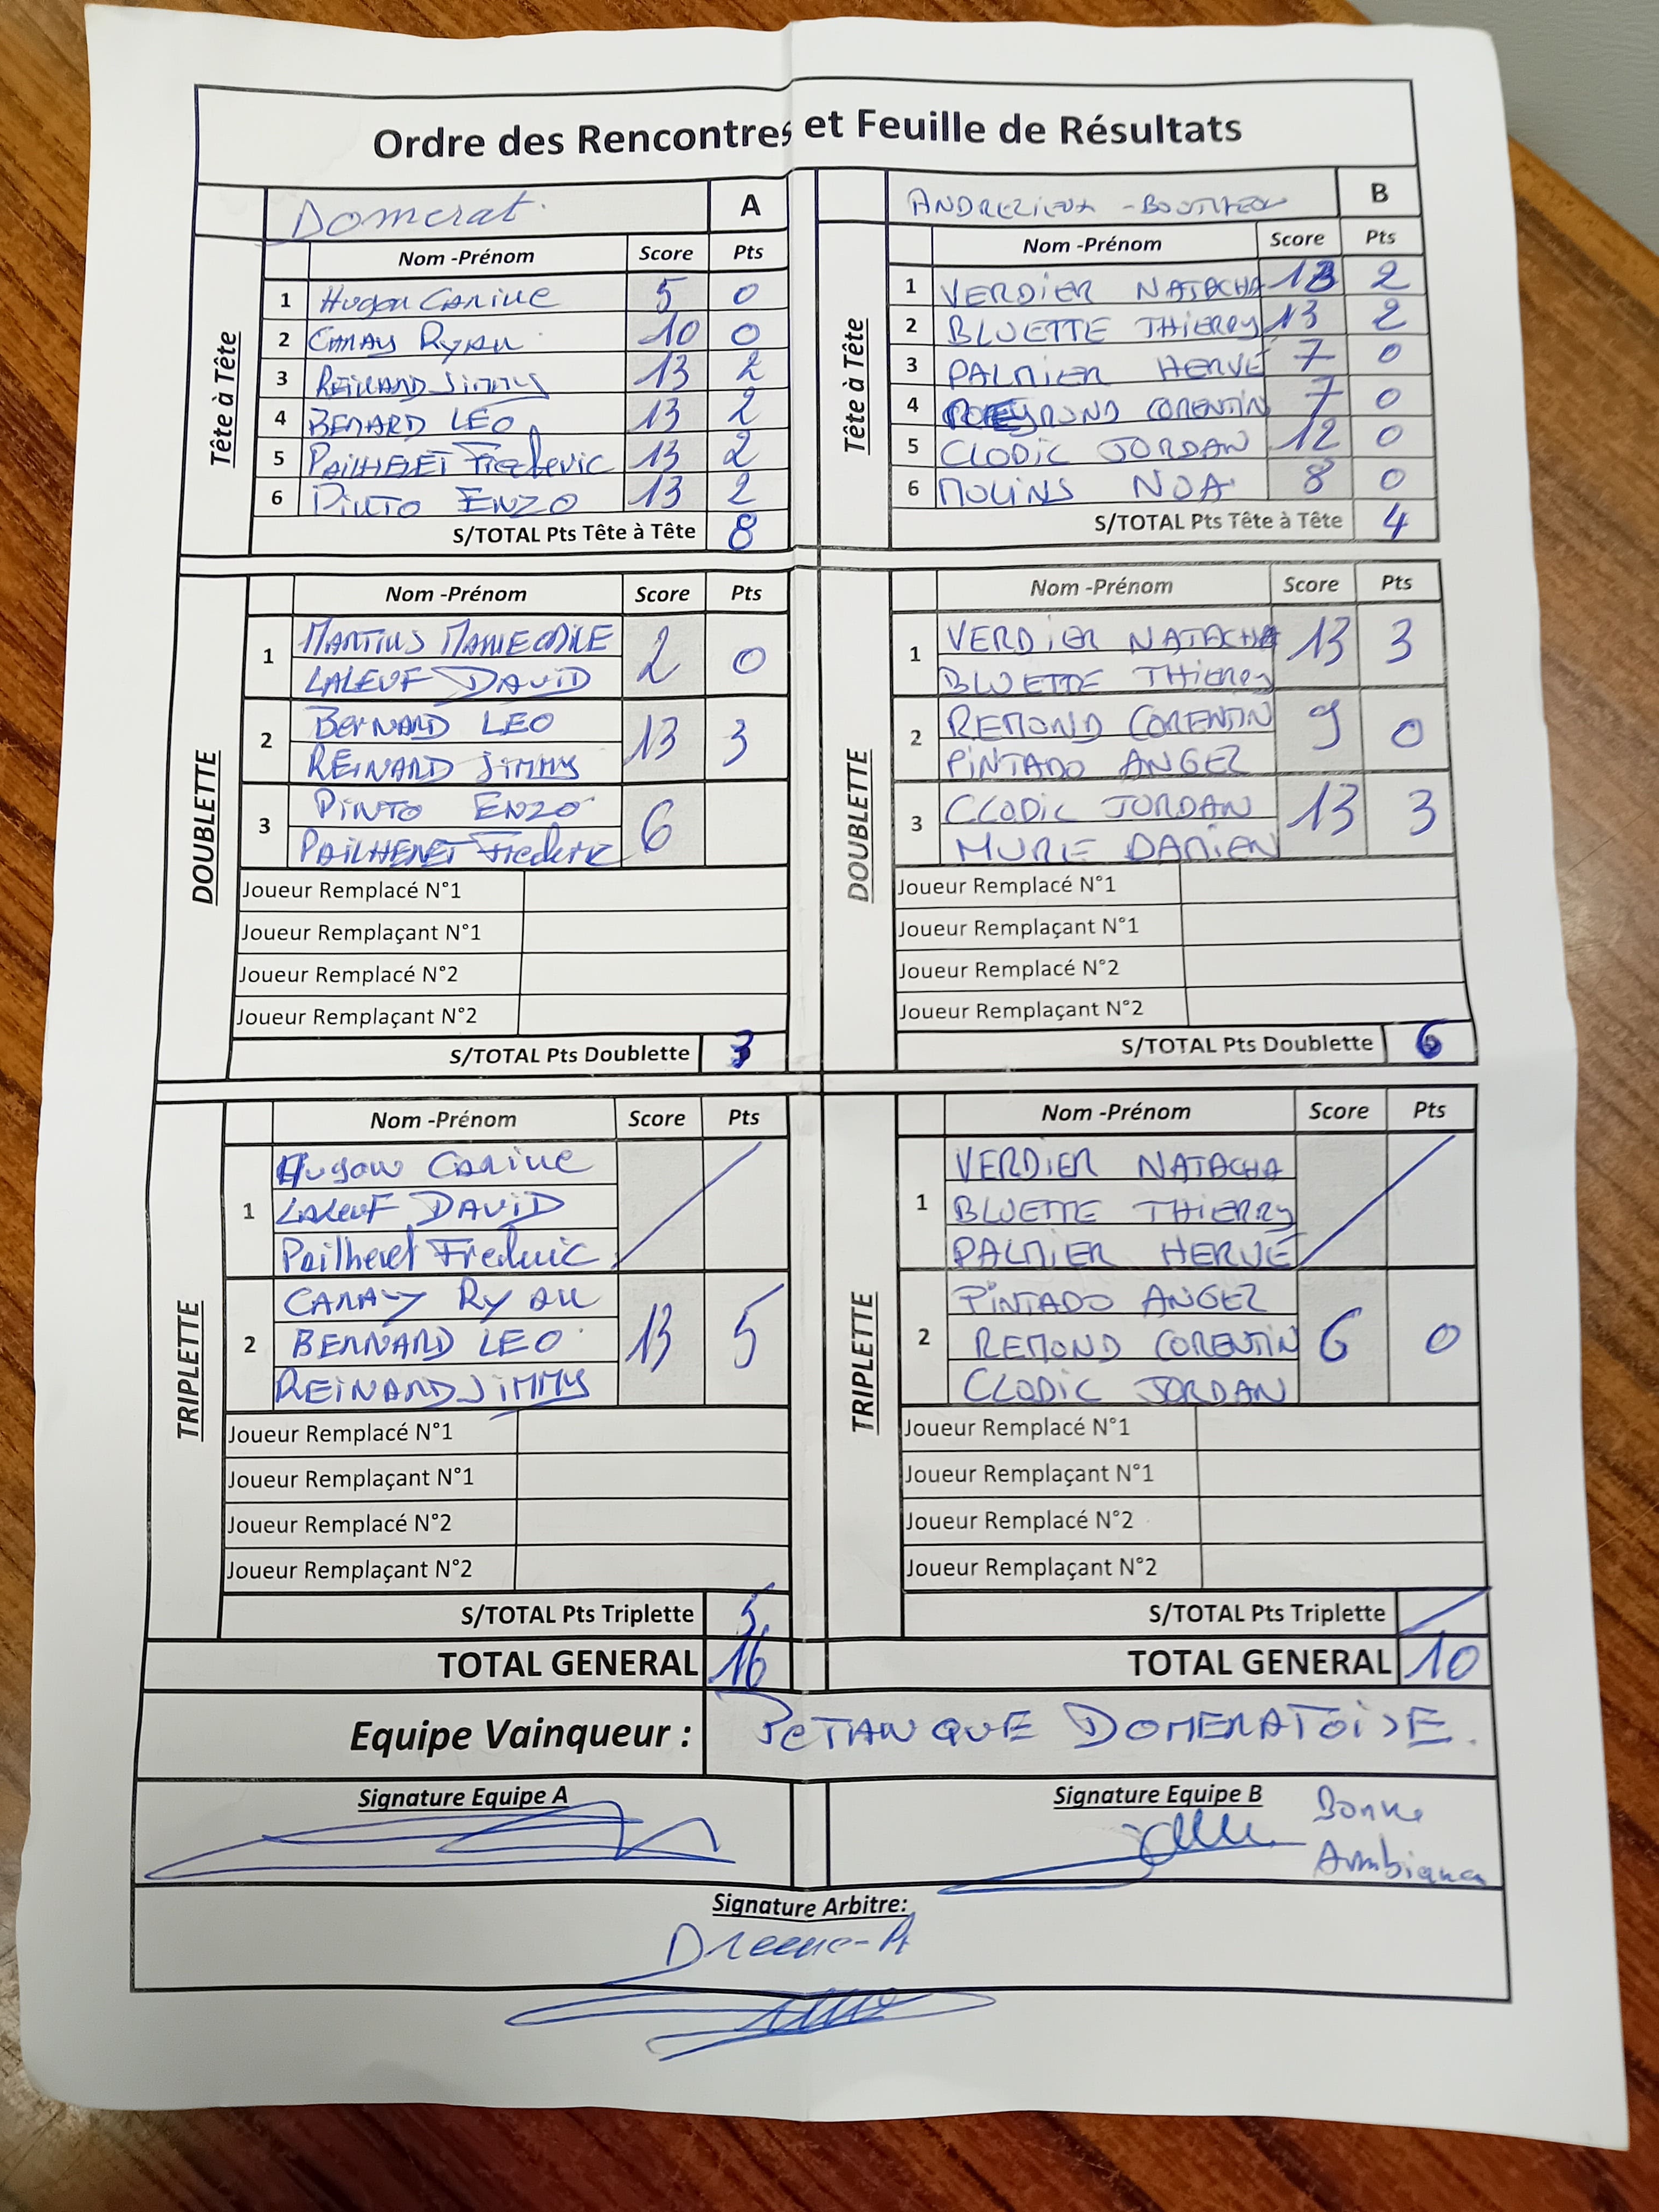 Ordre des Rencontres et Feuille de Résultats
Domerat A
Tête à Tête
Nom -Prénom Score Pts
1 Hugon Carine 5 0
2 CANAY Ryan 10 0
3 REINARD JIMMY 13 2
4 BENARD LEO 13 2
5 PAILHERET Frederic 13 2
6 PINTO ENZO 13 2
S/TOTAL Pts Tête à Tête 8
ANDREZIEUX - BOUTHEON B
Tête à Tête
Nom -Prénom Score Pts
1 VERDIER NATACHA 13 2
2 BLUETTE THIERRY 13 2
3 PALMIER HERVE 7 0
4 CORENTIN 7 0
5 CLODIC JORDAN 12 0
6 MOLINS NOA 8 0
S/TOTAL Pts Tête à Tête 4
DOUBLETTE
Nom -Prénom Score Pts
1 MARTINS MARIE ODILE 2 0
LALEUF DAVID
2 BERNARD LEO 13 3
REINARD JIMMY
3 PINTO ENZO 6
PAILHERET Frederic
Joueur Remplacé N°1
Joueur Remplaçant N°1
Joueur Remplacé N°2
Joueur Remplaçant N°2
S/TOTAL Pts Doublette 3
DOUBLETTE
Nom -Prénom Score Pts
1 VERDIER NATACHA 13 3
BLUETTE THIERRY
2 REMOND CORENTIN 9 0
PINTADO ANGEL
3 CLODIC JORDAN 13 3
MURE DAMIEN
Joueur Remplacé N°1
Joueur Remplaçant N°1
Joueur Remplacé N°2
Joueur Remplaçant N°2
S/TOTAL Pts Doublette 6
TRIPLETTE
Nom -Prénom Score Pts
1 Hugon Carine
LALeuF DAVID
Pailheret Frederic
2 CANAY RYAN 13 5
BERNARD LEO
REINARD JIMMY
Joueur Remplacé N°1
Joueur Remplaçant N°1
Joueur Remplacé N°2
Joueur Remplaçant N°2
S/TOTAL Pts Triplette 5
TOTAL GENERAL 16
TRIPLETTE
Nom -Prénom Score Pts
1 VERDIER NATACHA
BLUETTE THIERRY
PALMIER HERVE
2 PINTADO ANGEL 6 0
REMOND CORENTIN
CLODIC JORDAN
Joueur Remplacé N°1
Joueur Remplaçant N°1
Joueur Remplacé N°2
Joueur Remplaçant N°2
S/TOTAL Pts Triplette
TOTAL GENERAL 10
Equipe Vainqueur : PETANQUE DOMERATOISE.
Signature Equipe A
Signature Equipe B Bonne
Ambiance
Signature Arbitre: